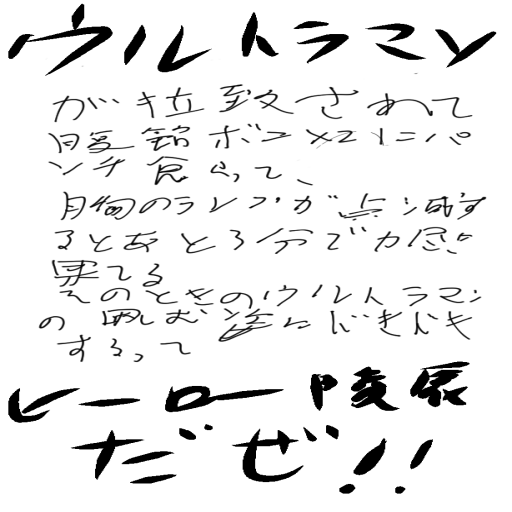 ウルトラマン
が拉致されて
腹筋ボコメコにパ
ンチ食らって、
胸のランプが点滅す
るとあと3分で力尽き
果てる
そのときのウルトラマン
の 姿にドキドキ
するって
ヒーロー陵辱
だぜ!!